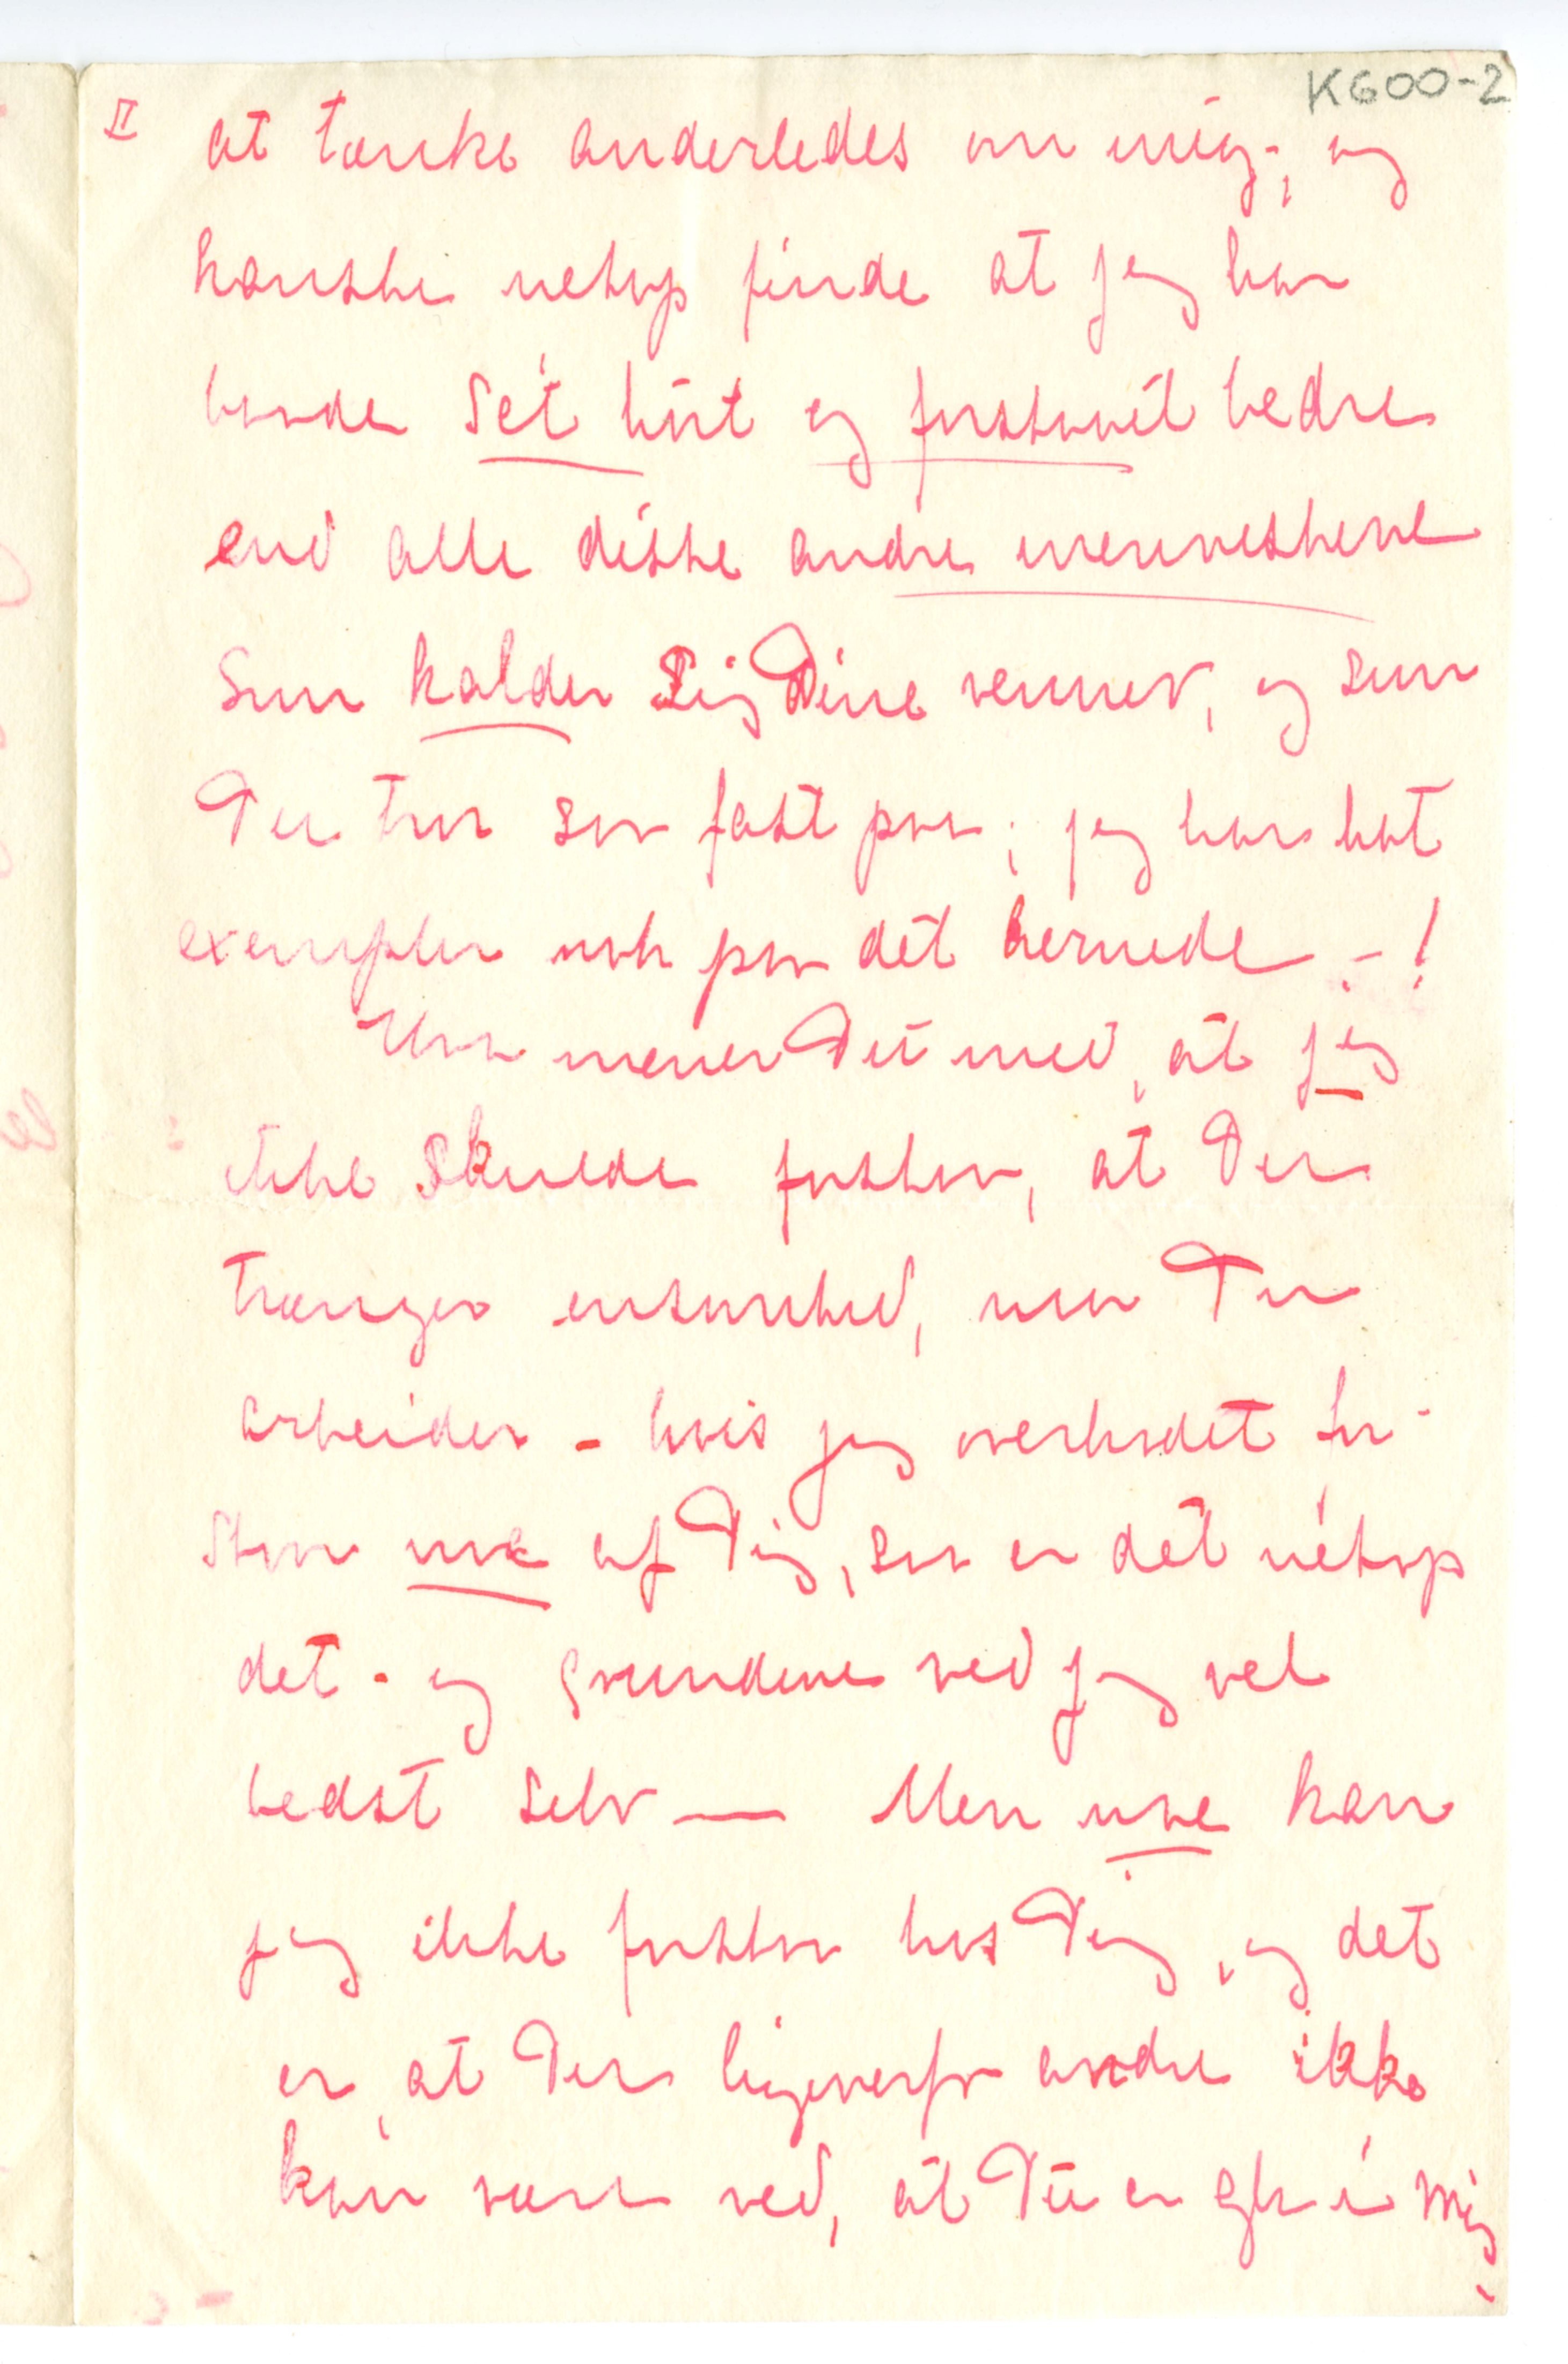 K600-2
II at tænke anderledes om mig-; og
kanske netop finde at jeg har
baade set hört og forstaaet bedre
end alle disse andre menneskene
som kalder sig Dine venner, og som
Du tror saa fast paa; jeg har hat
exempler nok paa det hernede -!
Hva mener Du med, at jeg
ikke skulde forstaa, at Du
trænger ensomhed, naar Du
arbeider - hvis jeg overhodet for-
staar noe af Dig, saa er det netop
det - og grundene ved jeg vel
bedst selv — Men noe kan
jeg ikke forstaa hos Dig, og det
er, at Du ligeoverfor andre ikke
kan være ved, at Du er gla i mig,